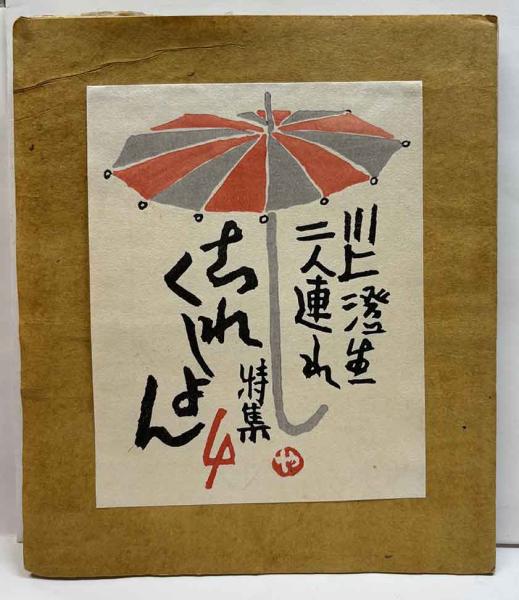 川上澄生
二人連れ
これ
くしよん
特集
4
や